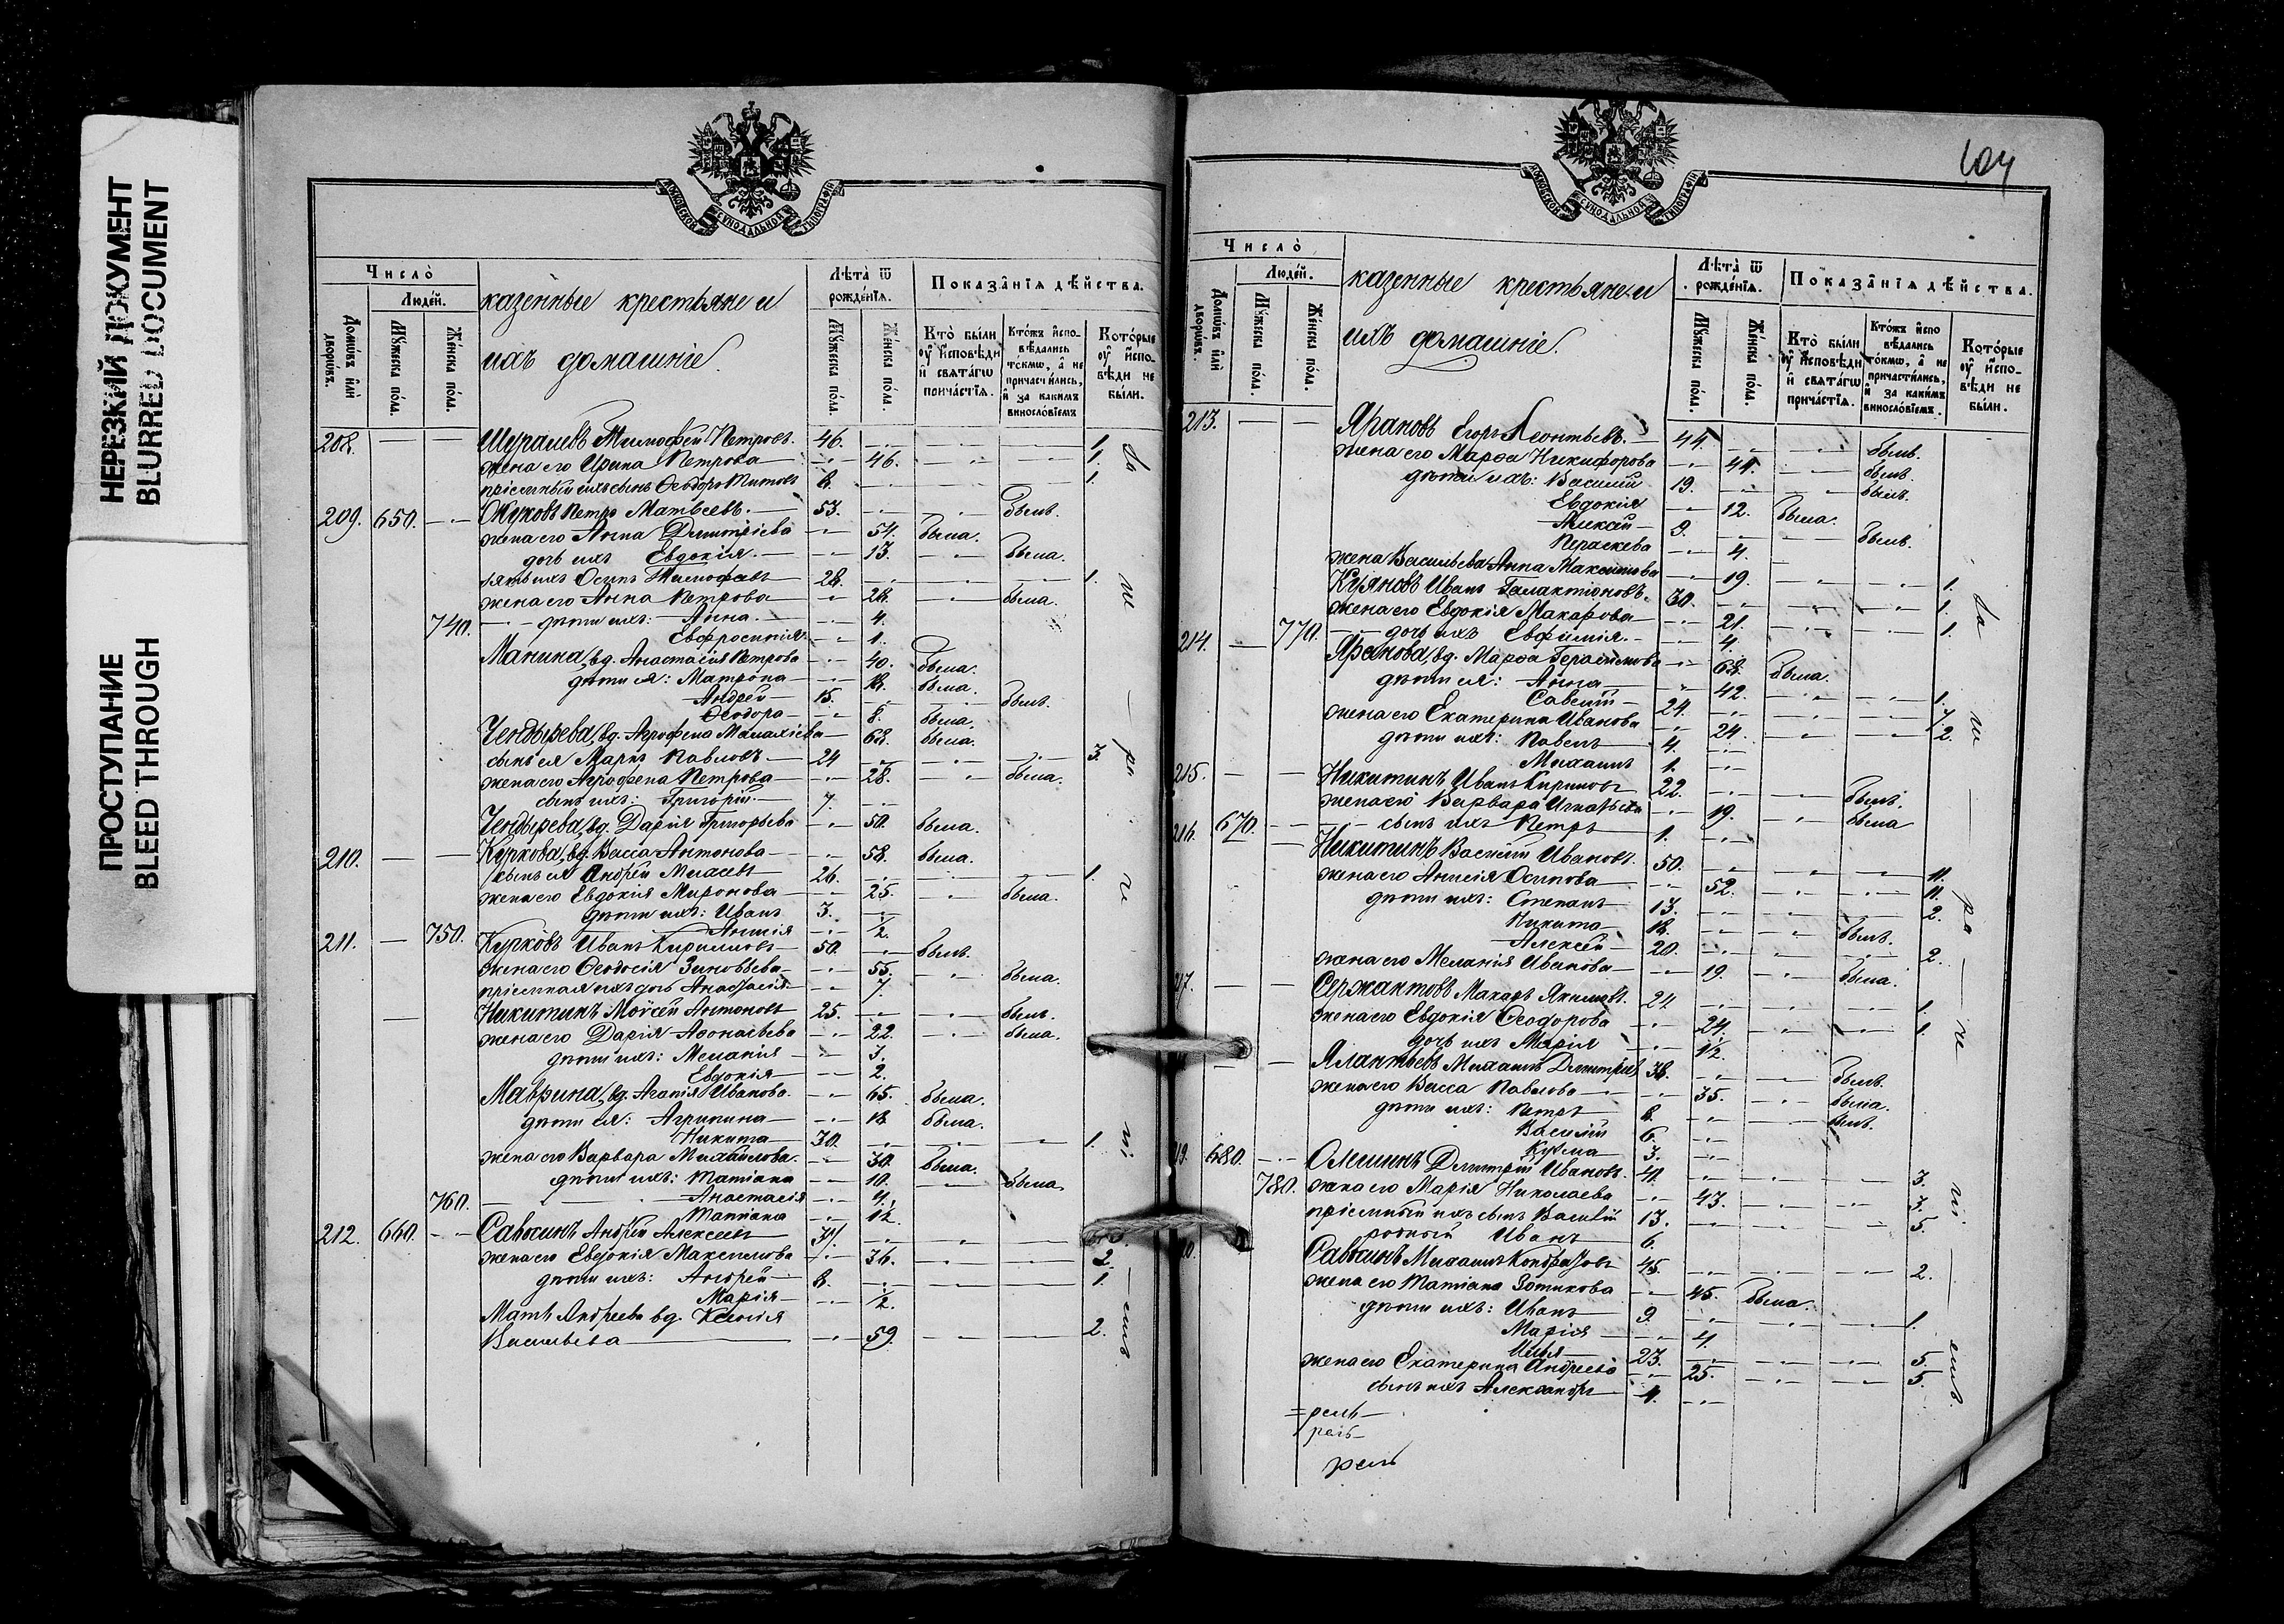 НЕРЕЗКИЙ ДОКУМЕНТ
BLURRED DOCUMENT
ПРОСТУПАНИЕ
BLEED THROUGH
МОСКОВСКОЙ СУНОДАЛЬНОЙ ТИПОГРАФІИ
Число̀
Людей.
Домѡвъ или дворѡвъ.
Мꙋжеска пола.
Женска пола.
казенные крестьяне и
ихъ домашніе.
Лѣта ѿ рожденія.
Мꙋжеска пола.
Женска пола.
Показанія дѣйства.
Кто были оу исповѣди и святагѡ причастія.
Ктожъ исповѣдались токмѡ, а не причастились, и за какимъ винословіемъ
Которые оу исповѣди не были.
208. — — Шурашевъ Тимофей Петровъ. 46. 1.
жена его Ирина Петрова 46. 1.
пріемный ихъ сынъ Ѳеодоръ Титовъ 8. 1.
209. 650. Жуковъ Петръ Матвеевъ. 53. былъ.
жена его Анна Димитріева 54. была.
дочь ихъ Евдокія. 13. была.
зять ихъ Осипъ Тимофеевъ 28. 1.
жена его Анна Петрова 28. была.
740. дѣти ихъ: Анна. 4.
Евфросинія 1.
Манина, вд. Анастасія Петрова 40. была.
дѣти ея: Матрона 18. была.
Андрей 15. былъ.
Ѳеодора 8. была.
Чендырева, вд. Агрофена Малахіева 68. была.
сынъ ея Маркъ Павловъ 24 3.
жена его Агрофена Петрова 28. была.
сынъ ихъ: Григорій. 7.
Чендырева, вд. Дарія Григорьева 50. была.
210. — — Куркова, вд. Васса Антонова 58. была.
сынъ ея Андрей Моисеевъ 26. 1.
жена его Евдокія Миронова 25. была.
дѣти ихъ: Иванъ 3.
750. Анисія 1/2.
211. — Курковъ Иванъ Кирилловъ 50. былъ.
жена его Ѳеодосія Зиновьева 55. была.
пріемная ихъ дочь Анастасія 7.
— Никитинъ Моѵсей Антоновъ 25. былъ.
жена его Дарія Аѳонасьева 22. была.
дѣти ихъ: Меланія 3.
Евдокія 2.
Маврина, вд. Агапія Иванова. 65. была.
дѣти ея: Агрипина 18 была.
Никита 30. 1.
жена его Варвара Михайлова. 30. была.
дѣти ихъ: Татіана 10. была.
760. Анастасія 4.
Татіана 1/2.
212. 660. Савосинъ Андрей Алексеевъ 37.
жена его Евдокія Максимова 36. 2.
дѣти ихъ: Андрей 8. 1.
Марія 1/2.
Мать Андреева вд. Ксенія
Васильева 59. 2.
104
МОСКОВСКОЙ СУНОДАЛЬНОЙ ТИПОГРАФІИ
Число̀
Людей.
Домѡвъ или дворѡвъ.
Мꙋжеска пола.
Женска пола.
казенные крестьяне и
ихъ домашніе.
Лѣта ѿ рожденія.
Мꙋжеска пола.
Женска пола.
Показанія дѣйства.
Кто были оу исповѣди и святагѡ причастія.
Ктожъ исповѣдались токмѡ, а не причастились, и за какимъ винословіемъ.
Которые оу исповѣди не были.
213. — — Ярановъ Егоръ Леонтьевъ. 44. былъ.
жена его Марѳа Никифорова 44. былъ.
дѣти ихъ: Василій 19. былъ.
Евдокія 12. была.
Алексѣй 9. былъ.
Пераскева 4.
жена Васильева Анна Максимова 19. 1.
Куряновъ Иванъ Галактіоновъ. 30. 1.
жена его Евдокія Макарова 21. 1.
770. дочь ихъ Евфимія. 4.
214. — Яранова, вд. Марѳа Герасимова 68. была.
дѣти ея: Анна 42. 1.
Савелій 24.
жена его Екатерина Иванова 24. 2.
дѣти ихъ: Павелъ 4.
Михаилъ 1.
215. — — Никитинъ Иванъ Кириловъ 22. былъ.
жена его Варвара Игнатьева 19. была
670. сынъ ихъ Петръ 1.
216. — Никитинъ Василій Ивановъ. 50. 11.
жена его Анисія Осипова 52. 11.
дѣти ихъ: Степанъ 13. 2.
Никита 18. былъ.
Алексѣй 20. 2.
жена его Меланія Иванова 19. была.
217. — — Сержантовъ Макаръ Якимовъ. 24 1.
жена его Евдокія Ѳеодорова 24. 1.
дочь ихъ Марія 1/2.
— — Ялантьевъ Михаилъ Димитріевъ 38. былъ.
жена его Васса Павлова 35. была.
дѣти ихъ: Петръ 8. былъ.
Василій 6.
Кузма 3.
19. 680. Олишинъ Димитрій Ивановъ. 40. 3.
780. жена его Марія Николаева 43. 3.
пріемный ихъ сынъ Василій 13. 5.
родный Иванъ 6.
Савосинъ Михаилъ Кондратовъ 45. 2.
жена его Татіана Зотикова 45. была.
дѣти ихъ: Иванъ 9. 1.
Марія 4.
Илья 23. 5.
жена его Екатерина Андреева 25. 5.
сынъ ихъ Александръ 1.